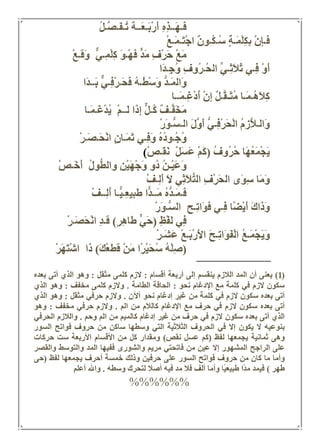 فَـهَـذِهِ أَرْبَـعَــةٌ تُـفَـصَّـلُ
فَـإِنْ بِـكِـلْـمَـةٍ سُـكُـونٌ اجْـتَـمَـعْ
مَعْ حَرْفِ مَدٍّ فَـهْـوَ كِـلْمِـيٌّ وَقَـعْ
أَوْ فِي ثُلاثِـيِّ الحُـرُوفِ وُجِـدَا
وَالمَـدُّ وَسْـطَـهُ فَـحَـرْفِـيٌّ بَــدَا
كِـلاَهُـمَـا مُـثَـقَّـلٌ إِنْ أُدْغِـمَـا
مُـخَـفَّـفٌ كُـلٌّ إِذَا لَــمْ يُـدْغَـمَـا
وَالــلاَّزِمُ الْـحَـرْفِـيُّ أَوَّلَ الـسُّـوَرْ
وُجُـودُهُ وَفِـي ثَـمَـانٍ انْـحَـصَـرْ
يَجْمَعُهَا حُرُوفُ (كَمْ عَسَلْ نَـقَـصْ)
وَعَـيْـنُ ذُو وَجْهَـيْنِ والطُّولُ أَخَـصّْ
وَمَا سِوَى الحَرْفِ الثُّلاَثِي لاَ أَلِـفْ
فَـمَـدُّهُ مَــدًّا طَبِيعِـيًّـا أُلِــفْ
وَذَاكَ أَيْـضًا فِي فَوَاتِـحِ السُّـوَرْ
فِي لَفْظِ (حَيٍّ طَاهِرٍ) قَـدِ انْحَصَرْ
وَيَـجْـمَـعُ الْفَوَاتِـحَ الأَرْبَـعْ عَـشَـرْ
(صِلْهُ سُحَيْرًا مَنْ قَطَعْكَ) ذَا اشْتَهَرْ
(1) يعني أن المد اللازم ينقسم إلى أربعة أقسام : لازم كلمى مثقل : وهو الذي أتى بعده
سكون لازم في كلمة مع الإدغام نحو : الحاقة الطامة . ولازم كلمى مخفف : وهو الذي
أتى بعده سكون لازم في كلمة من غير إدغام نحو آلآن . ولازم حرفي مثقل : وهو الذي
أتى بعده سكون لازم في حرف مع الإدغام كاللام من الم . ولازم حرفي مخفف : وهو
الذي أتى بعده سكون لازم في حرف من غير إدغام كالميم من الم وحم . واللازم الحرفي
بنوعيه لا يكون إلا في الحروف الثلاثية التي وسطها ساكن من حروف فواتح السور
وهى ثمانية يجمعها لفظ (كم عسل نقص) ومقدار كل من الأقسام الأربعة ست حركات
على الراجح المشهور إلا عين من فاتحتي مريم والشورى ففيها المد والتوسط والقصر
وأما ما كان من حروف فواتح السور على حرفين وذلك خمسة أحرف يجمعها لفظ (حى
طهر ) فيمد مدًا طبيعيًا وأما ألف فلا مد فيه أصلا لتحرك وسطه . والله أعلم
%%%%%%